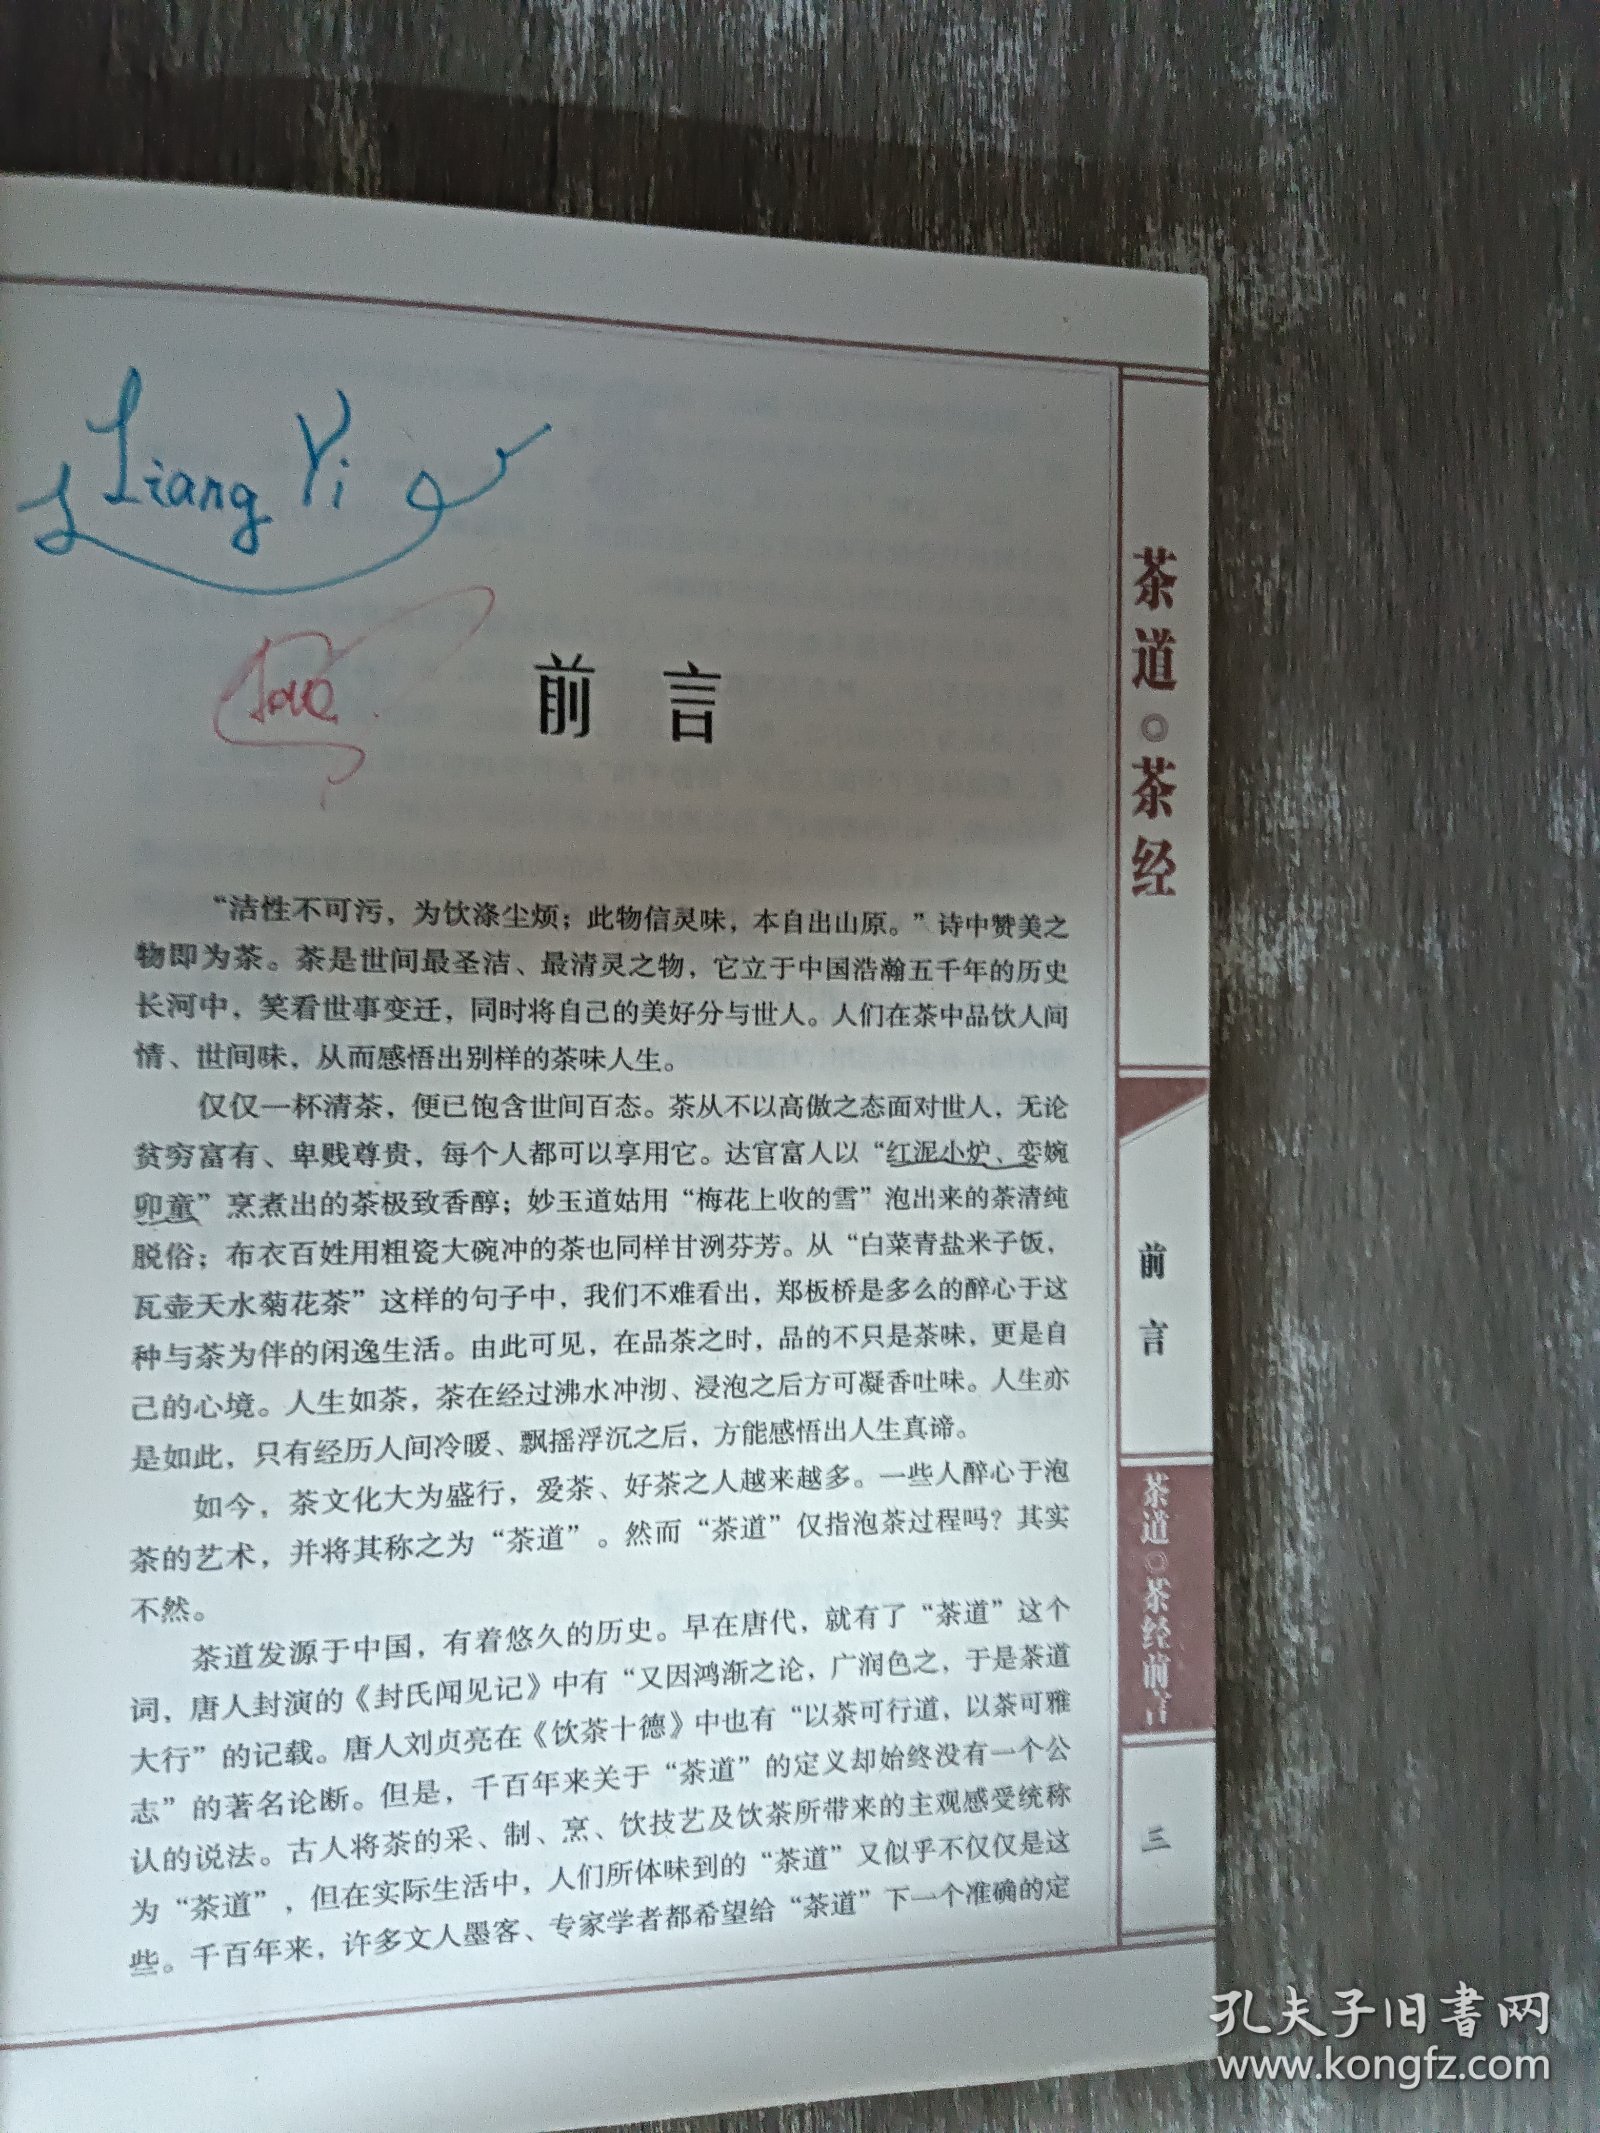 Liang Yi
Love
前言
“洁性不可污，为饮涤尘烦；此物信灵味，本自出山原。”诗中赞美之
物即为茶。茶是世间最圣洁、最清灵之物，它立于中国浩瀚五千年的历史
长河中，笑看世事变迁，同时将自己的美好分与世人。人们在茶中品饮人间
情、世间味，从而感悟出别样的茶味人生。
仅仅一杯清茶，便已饱含世间百态。茶从不以高傲之态面对世人，无论
贫穷富有、卑贱尊贵，每个人都可以享用它。达官富人以“红泥小炉、娈婉
卯童”烹煮出的茶极致香醇；妙玉道姑用“梅花上收的雪”泡出来的茶清纯
脱俗；布衣百姓用粗瓷大碗冲的茶也同样甘洌芬芳。从“白菜青盐米子饭，
瓦壶天水菊花茶”这样的句子中，我们不难看出，郑板桥是多么的醉心于这
种与茶为伴的闲逸生活。由此可见，在品茶之时，品的不只是茶味，更是自
己的心境。人生如茶，茶在经过沸水冲沏、浸泡之后方可凝香吐味。人生亦
是如此，只有经历人间冷暖、飘摇浮沉之后，方能感悟出人生真谛。
如今，茶文化大为盛行，爱茶、好茶之人越来越多。一些人醉心于泡
茶的艺术，并将其称之为“茶道”。然而“茶道”仅指泡茶过程吗？其实
不然。
茶道发源于中国，有着悠久的历史。早在唐代，就有了“茶道”这个
词，唐人封演的《封氏闻见记》中有“又因鸿渐之论，广润色之，于是茶道
大行”的记载。唐人刘贞亮在《饮茶十德》中也有“以茶可行道，以茶可雅
志”的著名论断。但是，千百年来关于“茶道”的定义却始终没有一个公
认的说法。古人将茶的采、制、烹、饮技艺及饮茶所带来的主观感受统称
为“茶道”，但在实际生活中，人们所体味到的“茶道”又似乎不仅仅是这
些。千百年来，许多文人墨客、专家学者都希望给“茶道”下一个准确的定
茶道◎茶经
前言
茶道◎茶经前言
三
孔夫子旧书网
www.kongfz.com